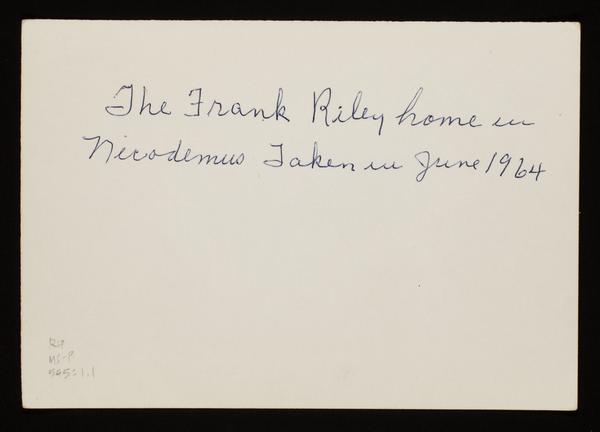 The Frank Riley home in
Nicodemus Taken in June 1964
RH
MS-P
545:1.1